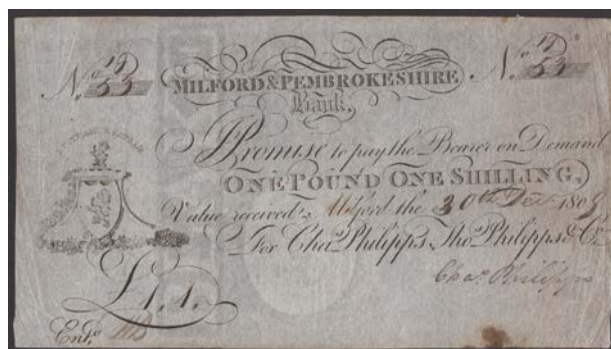 No. 19 No. 19
53 53
MILFORD & PEMBROKESHIRE
Bank,
I Promise to pay the Bearer on Demand
ONE POUND ONE SHILLING,
Value received, Milford the 30th Decr 1809
For Chas. Philipps, Thos. Philipps & Co.
Chas. Philipps
£1.1.
Entd.